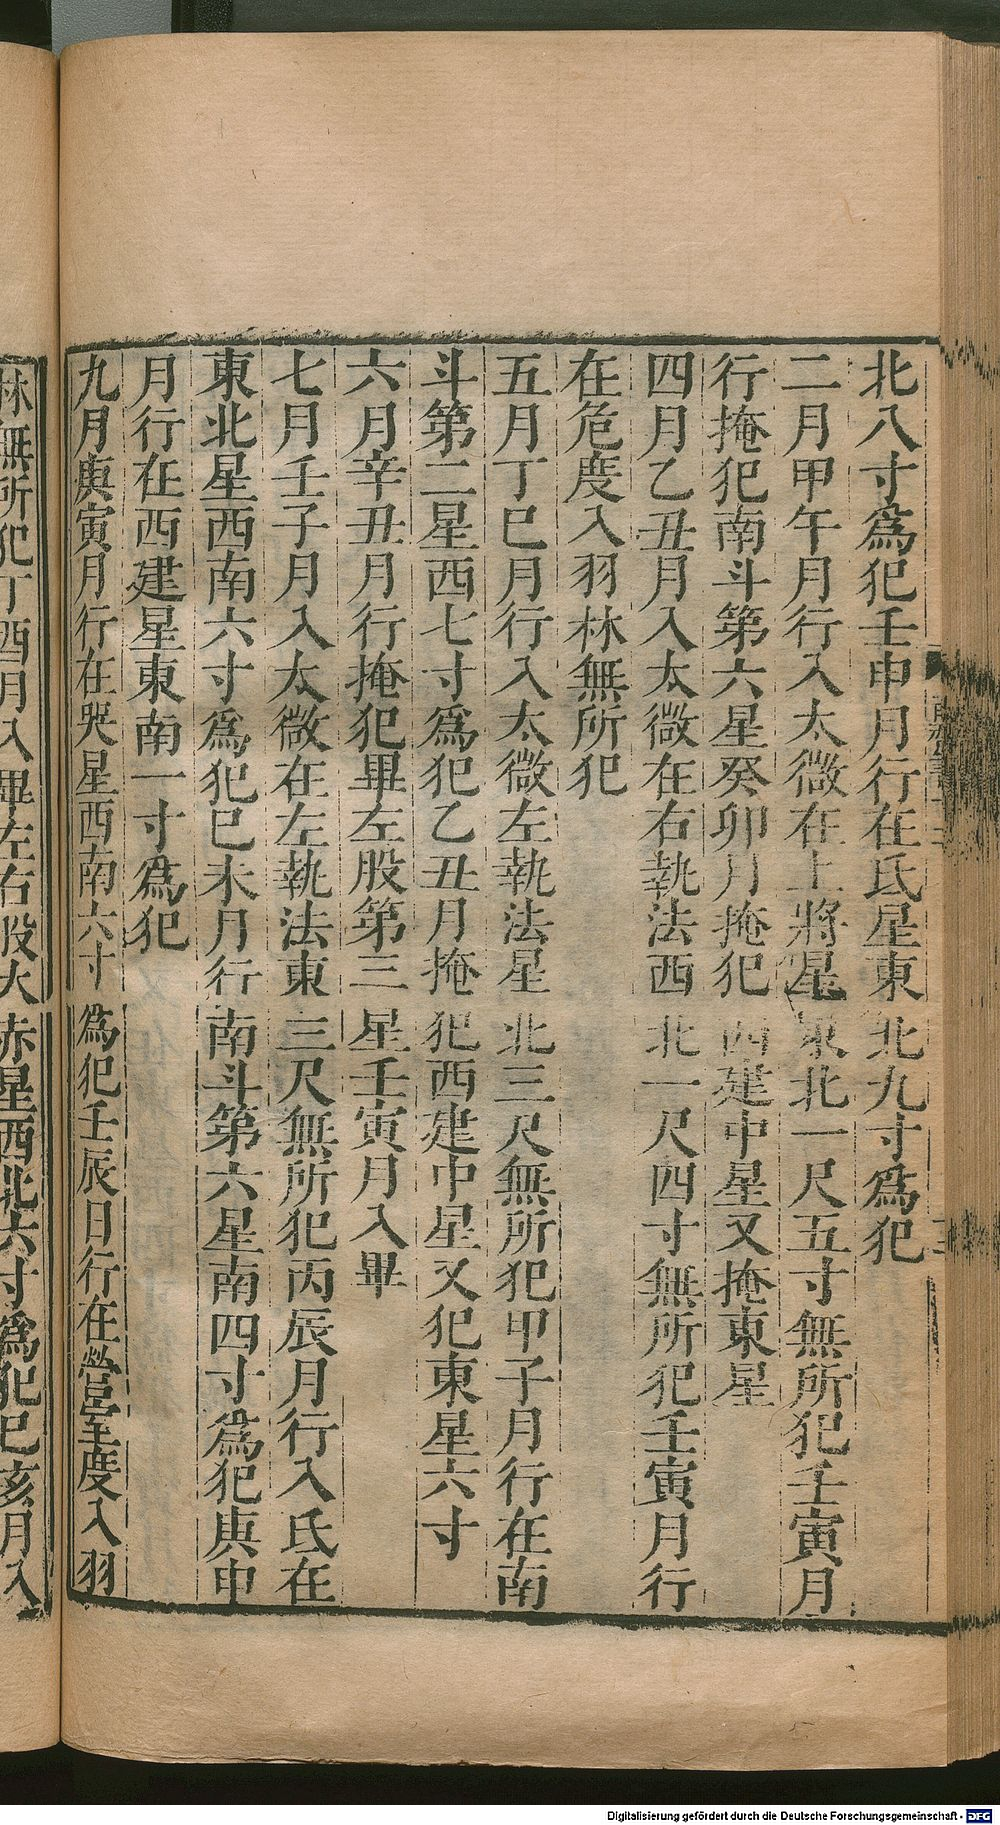 北八寸為犯壬申月行在氐星東北九寸為犯
二月甲午月行入太微在上將星東北一尺五寸無所犯壬寅月
行掩犯南斗第六星癸卯月掩犯西建中星又掩東星
四月乙丑月入太微在右執法西北一尺四寸無所犯壬寅月行
在危度入羽林無所犯
五月丁巳月行入太微左執法星北三尺無所犯甲子月行在南
斗第二星西七寸為犯乙丑月掩犯西建中星又犯東星六寸
六月辛丑月行掩犯畢左股第三星壬寅月入畢
七月壬子月入太微在左執法東三尺無所犯丙辰月行入氐在
東北星西南六寸為犯巳未月行南斗第六星南四寸為犯庚申
月行在西建星東南一寸為犯
九月庚寅月行在哭星西南六寸為犯壬辰日行在營室度入羽
林無所犯丁酉月入畢左右股大赤星西北六寸為犯巳亥月入
Digitalisierung gefördert durch die Deutsche Forschungsgemeinschaft - DFG